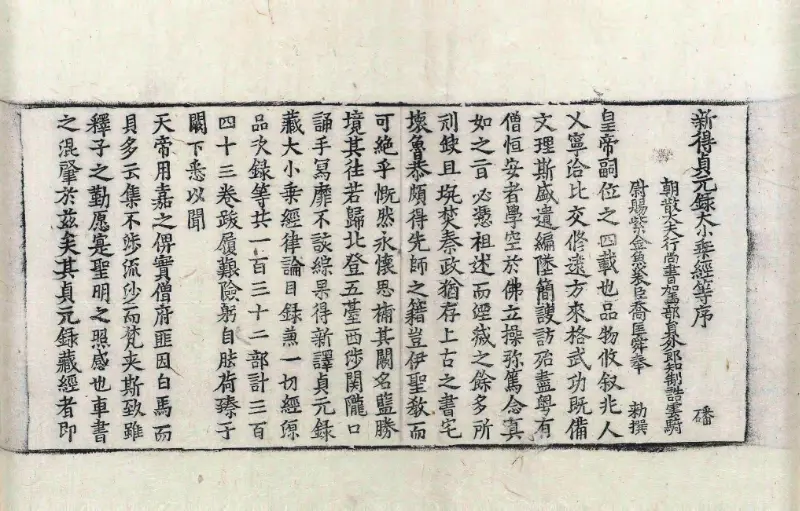 新得貞元錄大小乘經等序　磻
朝散大夫行尚書駕部員外郎知制誥雲騎
尉賜紫金魚袋臣喬匡舜奉　勑撰
皇帝嗣位之四載也品物攸敘兆人
乂寧洽比交修遠方來格武功旣備
文理斯盛遺編墜簡謏訪殆盡粤有
僧恒安者學空於佛立操弥篤念真
如之言必憑祖述而經藏之餘多所
刓缺且埦焚秦政猶存上古之書宅
壞魯恭頗得先師之籍豈伊聖教而
可絶乎慨然永懷思補其闕名藍勝
境其往若歸北登五臺西涉関隴口
誦手冩靡不該綜果得新譯貞元錄
藏大小乘經律論目錄兼一切經源
品次錄等共一百三十二部計三百
四十三卷跋履艱險躬自肚荷臻于
闕下悉以聞
天帝用嘉之俾實僧府匪因白馬而
貝多云集不涉流沙而梵夾斯致雖
釋子之勤愿寔聖明之照感也車書
之混肇於茲矣其貞元錄藏經者即